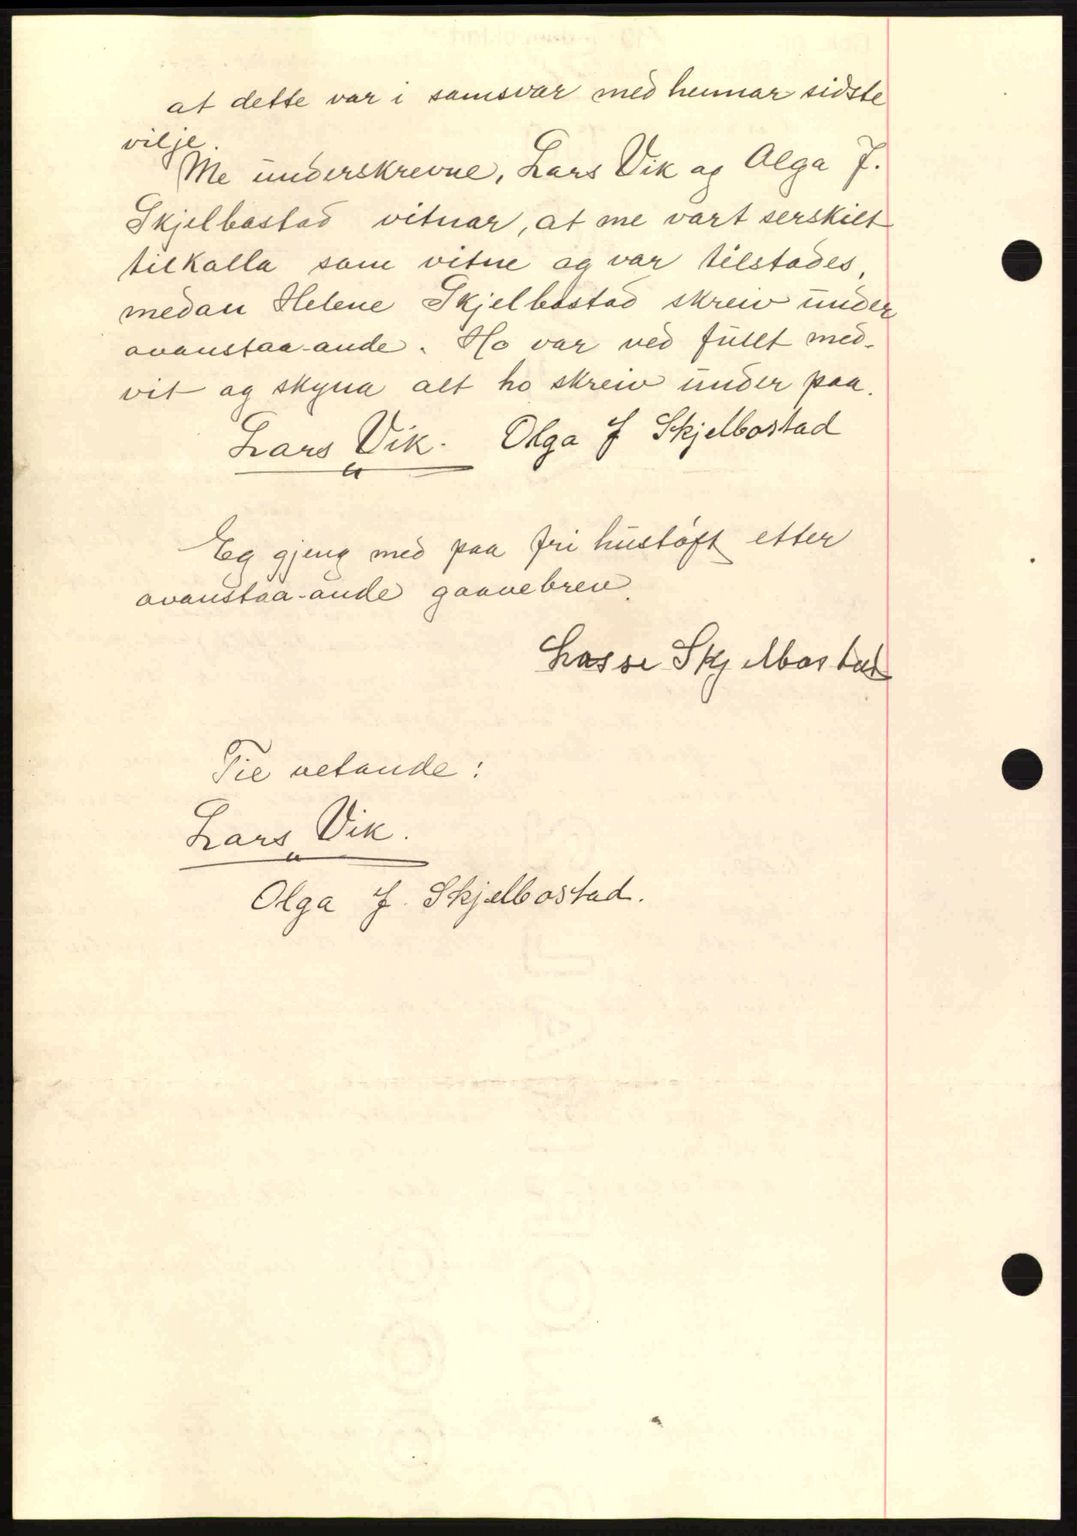 at dette var i samsvar med hennar sidste
vilje.
Me underskrevne, Lars Vik og Olga J.
Skjelbostad vitnar, at me vart serskilt
tilkalla som vitne og var tilstades,
medan Helene Skjelbostad skreiv under
ovanstaa-ande. Ho var ved fullt med-
vit og skyna alt ho skreiv under paa.
Lars Vik. Olga J Skjelbostad
Eg gjeng med paa fri hustøft etter
ovanstaa-ande gaavebrev.
Lasse Skjelbostad
Til vetande:
Lars Vik.
Olga J. Skjelbostad.